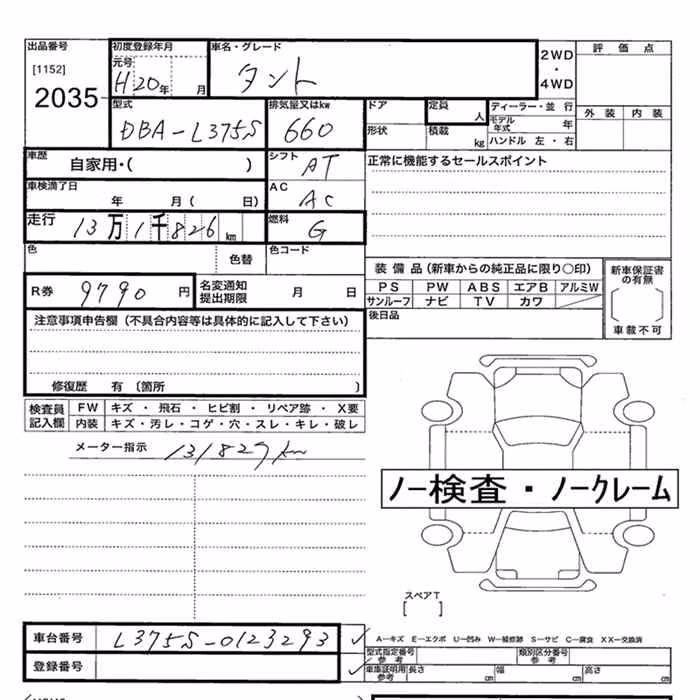 出品番号 初度登録年月 車名・グレード 2WD・4WD 評価点
[1152] 元号 タント
2035 H20年 月 外装 内装
型式 排気量又はkw ドア 定員 人 ディーラー・並行
DBA-L375S 660 形状 積載 kg モデル年式 年
ハンドル 左・右
車歴 自家用・( ) シフト AT 正常に機能するセールスポイント
車検満了日 年 月( 日) AC AC
走行 13万1千826km 燃料 G
色 色替 色コード
装備品(新車からの純正品に限り○印) 新車保証書の有無
R券 9790円 名変通知提出期限 月 日 PS PW ABS エアB アルミW
サンルーフ ナビ TV カワ
[ ]
車載不可
注意事項申告欄(不具合内容等は具体的に記入して下さい) 後日品
修復歴 有〔箇所 〕
検査員記入欄 FW キズ・飛石・ヒビ割・リペア跡・X要
内装 キズ・汚レ・コゲ・穴・スレ・キレ・破レ
メーター指示 131827km
ノー検査・ノークレーム
スペアT
[ ]
車台番号 L375S-0123293 A−キズ E−エクボ U−凹み W−補修跡 S−サビ C−腐食 XX−交換済
型式指定番号 参考 類別区分番号 参考
登録番号 車庫証明用参考 長さ cm 幅 cm 高さ cm